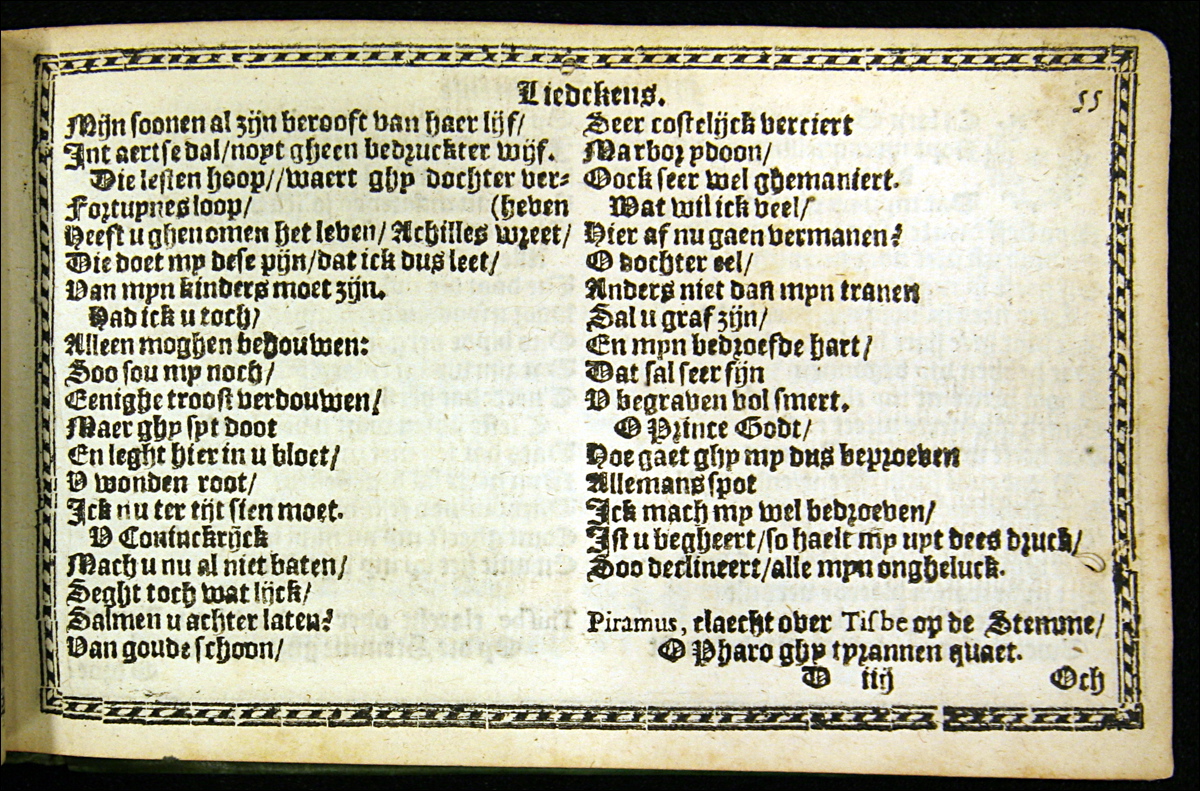 Liedekens.
55
Mijn soonen al zijn berooft van haer lijf/
Int aertse dal/noyt gheen bedruckter wijf.
Die lesten hoop//waert ghy dochter ver-
Fortuynes loop/ (heven
Heeft u ghenomen het leven/ Achilles wreet/
Die doet my dese pijn/dat ick dus leet/
Van myn kinders moet zijn.
Had ick u toch/
Alleen moghen behouwen:
Soo sou my noch/
Eenighe troost verdouwen/
Maer ghy syt doot
En leght hier in u bloet/
V wonden root/
Ick nu ter tijt sien moet.
V Coninckrijck
Mach u nu al niet baten/
Seght toch wat lijck/
Salmen u achter laten?
Van goude schoon/
Seer costelijck verciert
Marbor ydoon/
Oock seer wel ghemaniert.
Wat wil ick veel/
Hier af nu gaen vermanen?
O dochter eel/
Anders niet dan myn tranen
Sal u graf zijn/
En myn bedroefde hart/
Dat sal seer fijn
V begraven vol smert.
O Prince Godt/
Hoe gaet ghy my dus beproeven
Allemans spot
Ick mach my wel bedroeven/
Ist u begheert/so haelt my uyt dees druck/
Soo declineert/alle myn ongheluck.
Piramus, claecht over Tisbe op de Stemme/
O Pharo ghy tyrannen quaet.
D iiij Och